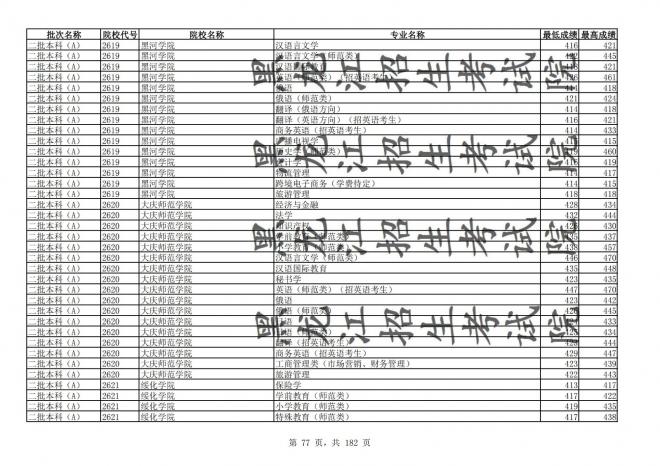 批次名称 院校代号 院校名称 专业名称 最低成绩 最高成绩
二批本科（A） 2619 黑河学院 汉语言文学 416 421
二批本科（A） 2619 黑河学院 汉语言文学（师范类） 445
二批本科（A） 2619 黑河学院 421
二批本科（A） 2619 黑河学院 英语（师范类）（招英语考生） 461
二批本科（A） 2619 黑河学院 俄语 418
二批本科（A） 2619 黑河学院 俄语（师范类） 421 424
二批本科（A） 2619 黑河学院 翻译（俄语方向） 414 418
二批本科（A） 2619 黑河学院 翻译（英语方向）（招英语考生） 416 421
二批本科（A） 2619 黑河学院 商务英语（招英语考生） 414 433
二批本科（A） 2619 黑河学院 广播电视学 415
二批本科（A） 2619 黑河学院 历史学（师范类） 460
二批本科（A） 2619 黑河学院 会计学 419
二批本科（A） 2619 黑河学院 物流管理 417
二批本科（A） 2619 黑河学院 跨境电子商务（学费待定） 414 415
二批本科（A） 2619 黑河学院 旅游管理 418
二批本科（A） 2620 大庆师范学院 经济与金融 428 434
二批本科（A） 2620 大庆师范学院 法学 432 444
二批本科（A） 2620 大庆师范学院 知识产权 430
二批本科（A） 2620 大庆师范学院 学前教育（师范类） 437
二批本科（A） 2620 大庆师范学院 小学教育（师范类） 457
二批本科（A） 2620 大庆师范学院 汉语言文学（师范类） 446 470
二批本科（A） 2620 大庆师范学院 汉语国际教育 435 448
二批本科（A） 2620 大庆师范学院 秘书学 423 435
二批本科（A） 2620 大庆师范学院 英语（师范类）（招英语考生） 447 470
二批本科（A） 2620 大庆师范学院 俄语 423 442
二批本科（A） 2620 大庆师范学院 俄语（师范类） 446
二批本科（A） 2620 大庆师范学院 433
二批本科（A） 2620 大庆师范学院 434
二批本科（A） 2620 大庆师范学院 翻译（招英语考生） 444
二批本科（A） 2620 大庆师范学院 商务英语（招英语考生） 429 447
二批本科（A） 2620 大庆师范学院 工商管理类（市场营销、财务管理） 423 439
二批本科（A） 2620 大庆师范学院 旅游管理 422 443
二批本科（A） 2621 绥化学院 保险学 413 417
二批本科（A） 2621 绥化学院 学前教育（师范类） 417 422
二批本科（A） 2621 绥化学院 小学教育（师范类） 419 435
二批本科（A） 2621 绥化学院 特殊教育（师范类） 417 438
黑龙江招生考试院
黑龙江招生考试院
黑龙江招生考试院
黑龙江招生考试院
第 77 页，共 182 页